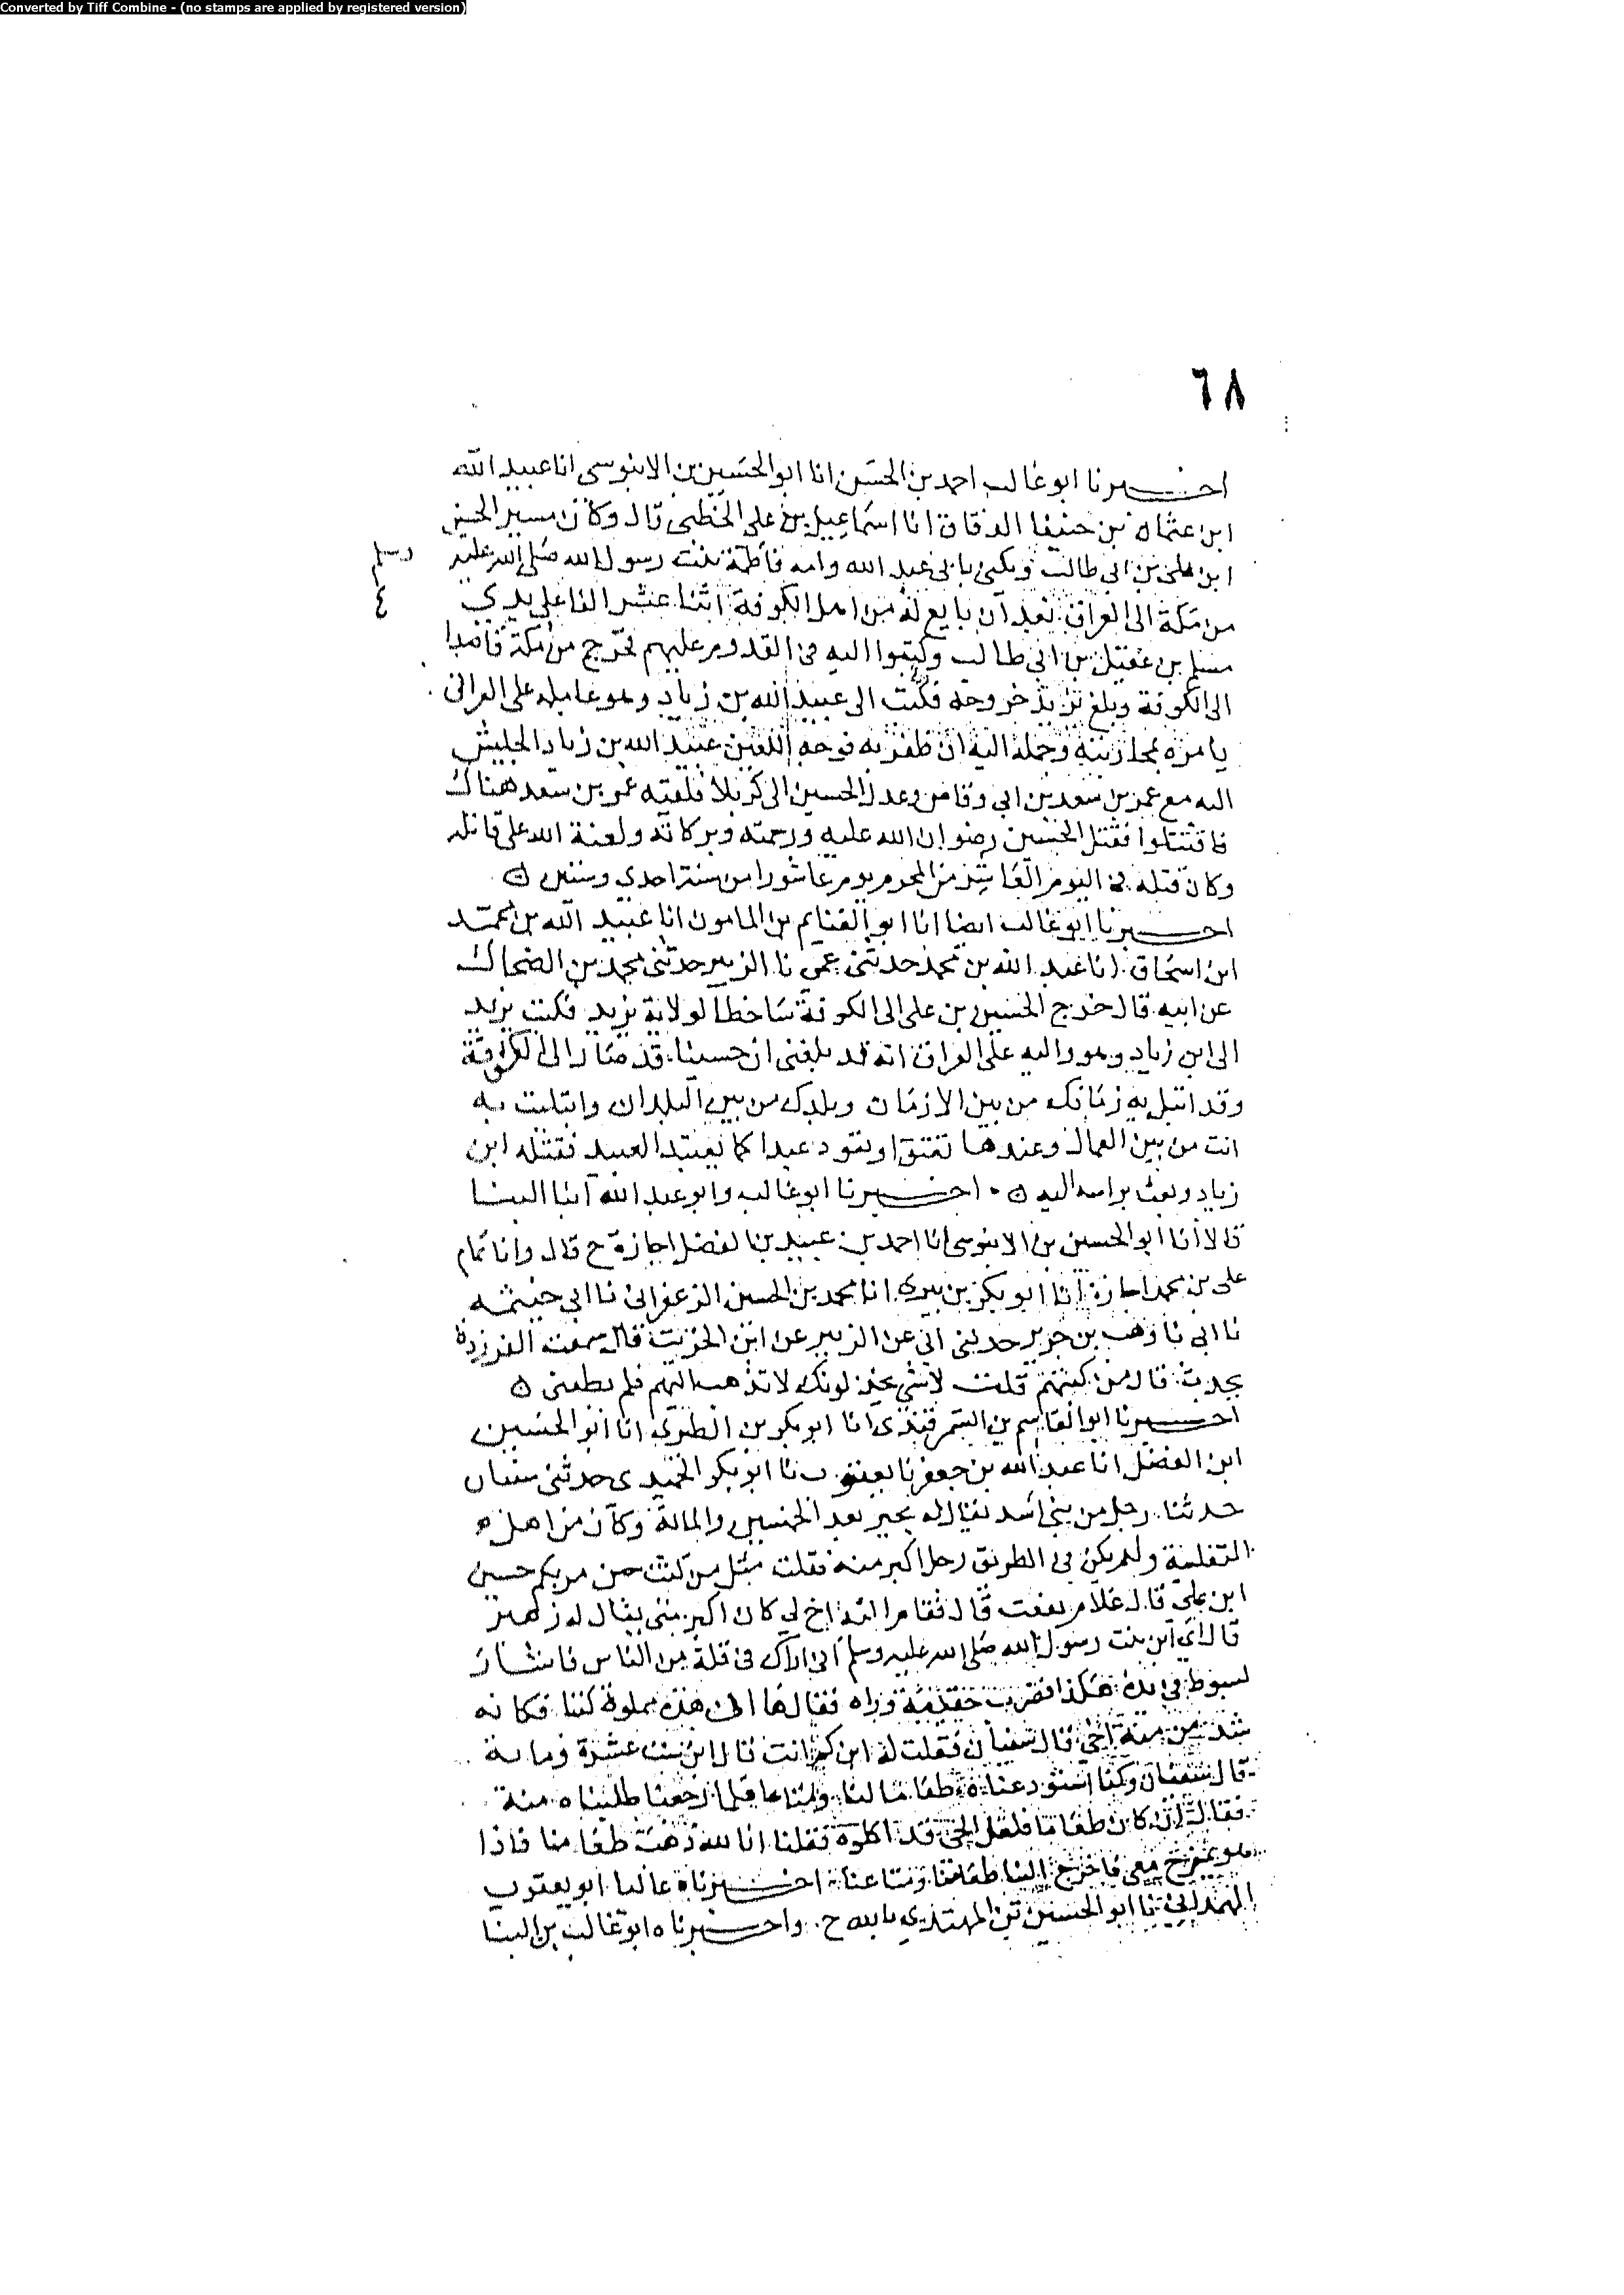 Converted by Tiff Combine - (no stamps are applied by registered version)
٦٨
اخبرنا ابو غالب احمد بن الحسن انا ابو الحسين بن الابنوسى انا عبيد الله
ابن عثمان بن حنيفا الدقاق انا اسماعيل بن على الخطبى قال وكان مسير الحسين
ابن على بن ابى طالب ويكنى بابى عبد الله وامه فاطمة بنت رسول الله صلى الله عليه
من مكة الى العراق بعد ان بايع له من اهل الكوفة اثنا عشر الفا على يدي
مسلم بن عقيل بن ابى طالب وكتبوا اليه فى القدوم عليهم فخرج من مكة قاصدا
الى الكوفة وبلغ يزيد خروجه فكتب الى عبيد الله بن زياد وهو عامله على العراق
يامره بمحاربته وحمله اليه ان ظفر به فوجه اللعين عبيد الله بن زياد الجليش
اليه مع عمر بن سعد بن ابى وقاص وعدل الحسين الى كربلا فلقيه عمر بن سعد هناك
فاقتتلوا فقتل الحسين رضوان الله عليه ورحمته وبركاته ولعنة الله على قاتله
وكان قتله فى اليوم العاشر من المحرم يوم عاشورا من سنة احدى وستين
اخبرنا ابو غالب ايضا انا ابو الغنايم بن المامون انا عبيد الله بن محمد
ابن اسحاق انا عبد الله بن محمد حدثنى عمى نا الزبير حدثنى محمد بن الضحاك
عن ابيه قال خرج الحسين بن على الى الكوفة ساخطا لولاية يزيد فكتب يزيد
الى ابن زياد وهو واليه على العراق انه قد بلغنى ان حسينا قد صار الى الكوفة
وقد ابتلى به زمانك من بين الازمان وبلدك من بين البلدان وابتليت به
انت من بين العمال وعندها تعتق او تعود عبدا كما يعتبد العبيد فقتله ابن
زياد وبعث براسه اليه اخبرنا ابو غالب وابو عبد الله ابنا البنا
قالا انا ابو الحسين بن الابنوسى انا احمد بن عبيد بن الفضل اجازة ح قال وانا تمام
على بن محمد اجازة انا ابو بكر بن بيرى انا محمد بن الحسين الزعفرانى نا ابى خيثمه
نا ابى نا وهب بن جرير حدثنى ابى عن الزبير عن ابن الخريت قال سمعت الفرزدق
يحدث قال من كنتم قلت لاشى يخذلونك لا تذهب اليهم فلم يطعنى
اخبرنا ابو القاسم بن السمرقندى انا ابو بكر بن الطبرى انا ابو الحسين
ابن الفضل انا عبد الله بن جعفر نا يعقوب نا ابو بكر الحميدى حدثنى سفيان
حدثنا رجل من بنى اسد يقال له بحير بعد الخمسين والماية وكان من اهل
الثعلبية ولم يكن فى الطريق رجل اكبر منه فقلت مثل من كنت حين مر بكم حسين
ابن على قال غلام يفعت قال فقام اليه اخ لى كان اكبر منى يقال له زهير
قال اى ابن بنت رسول الله صلى الله عليه وسلم انى اراك فى قلة من الناس فاشار
بسوط فى يده هكذا فضرب حقيبة وراه فقال ها ان هذه مملوة كتبا فكانه
شد من منة اخى قال سفيان فقلت له ابن كم انت قال ابن ست عشرة وماية
قال سفيان وكنا استودعناه طعاما لنا ومتاعا فلما رجعنا طلبناه منه
فقال ان كان طعاما فلعل الحى قد اكلوه فقلنا انا لله ذهب طعامنا فاذا
هو يمزح معى فاخرج الينا طعامنا ومتاعنا اخبرناه عاليا ابو يعقوب
الهمدانى نا ابو الحسين بن المهتدى بالله ح واخبرناه ابو غالب بن البنا